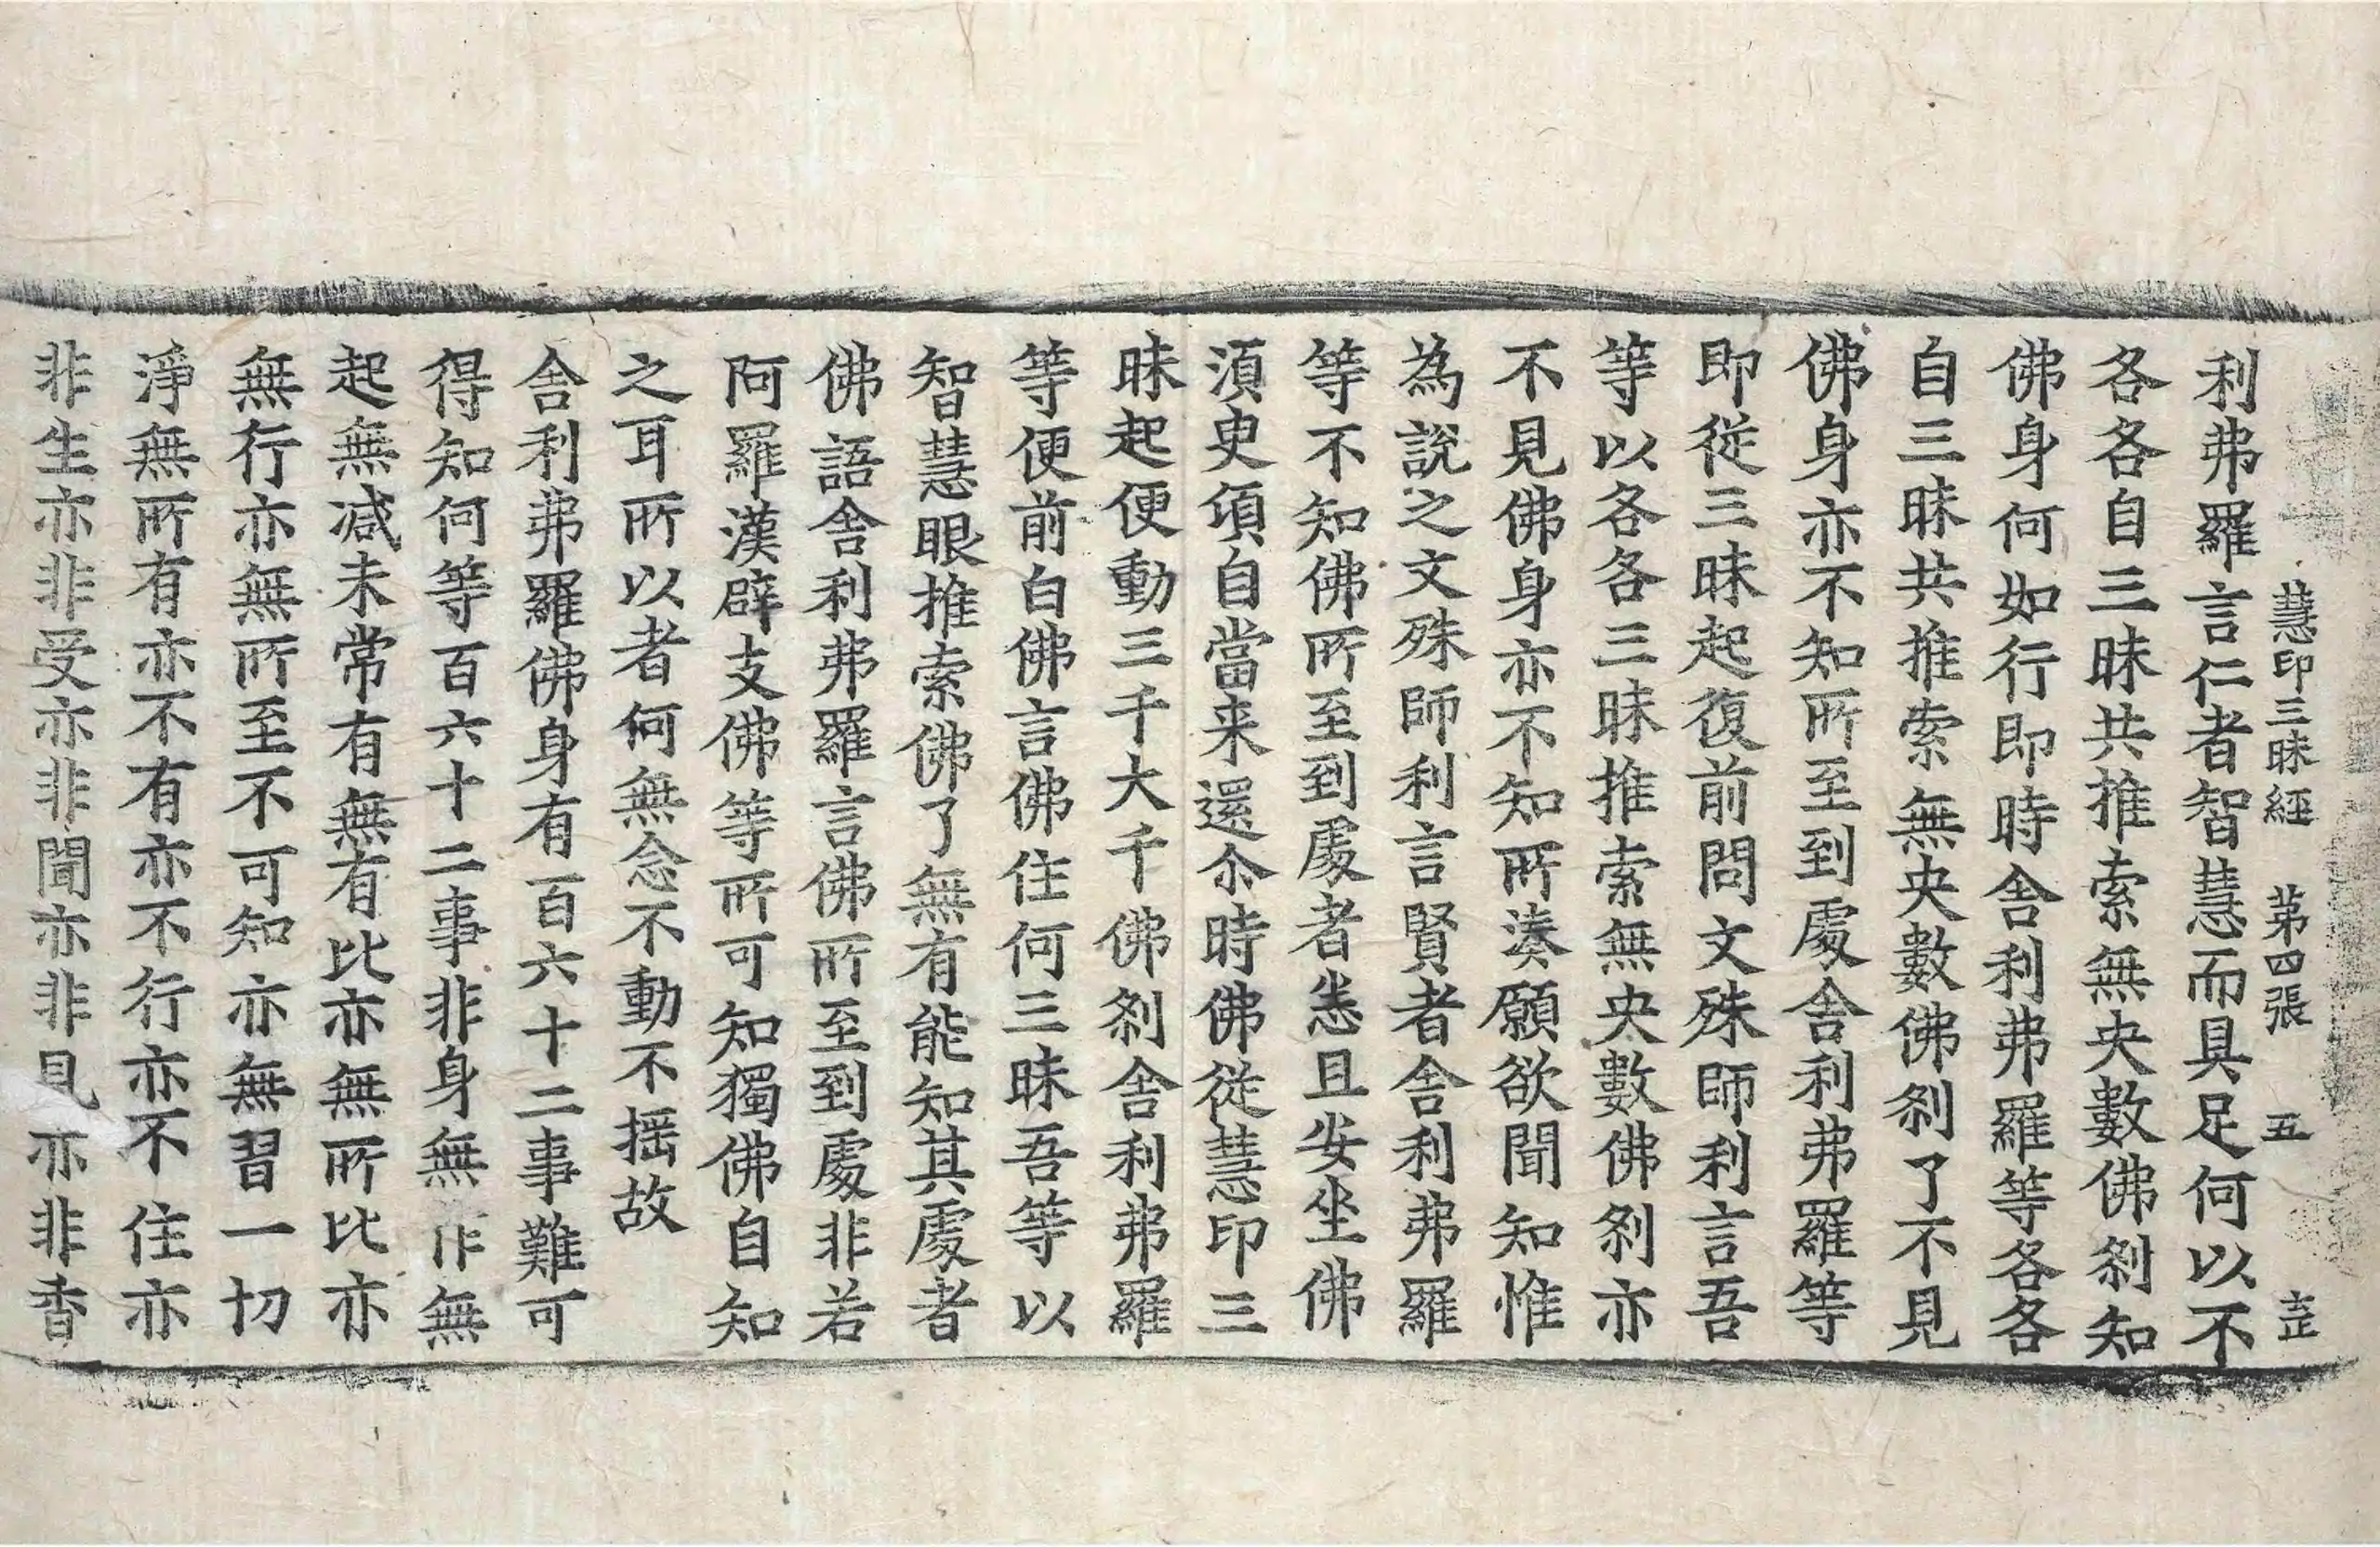 慧印三昧經 苐四張 五
利弗羅言仁者智慧而具足何以不
各各自三昧共推索無央數佛刹知
佛身何如行即時舎利弗羅等各各
自三昧共推索無央數佛刹了不見
佛身亦不知所至到處舎利弗羅等
即從三昧起復前問文殊師利言吾
等以各各三昧推索無央數佛刹亦
不見佛身亦不知所湊願欲聞知惟
為說之文殊師利言賢者舎利弗羅
等不知佛所至到處者恙且安坐佛
湏臾頃自當来還尒時佛從慧印三
昧起便動三千大千佛刹舎利弗羅
等便前白佛言佛住何三昧吾等以
智慧眼推索佛了無有能知其處者
佛語舎利弗羅言佛所至到處非若
阿羅漢辟支佛等所可知獨佛自知
之耳所以者何無念不動不揺故
舎利弗羅佛身有百六十二事難可
得知何等百六十二事非身無作無
起無减未常有無有比亦無所比亦
無行亦無所至不可知亦無習一切
淨無所有亦不有亦不行亦不住亦
非生亦非受亦非聞亦非見亦非香